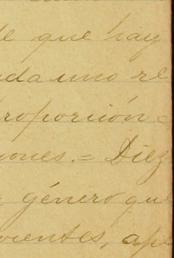 de que hay
ada uno re
roporción
ones.= Diez
género que
cientes, ape